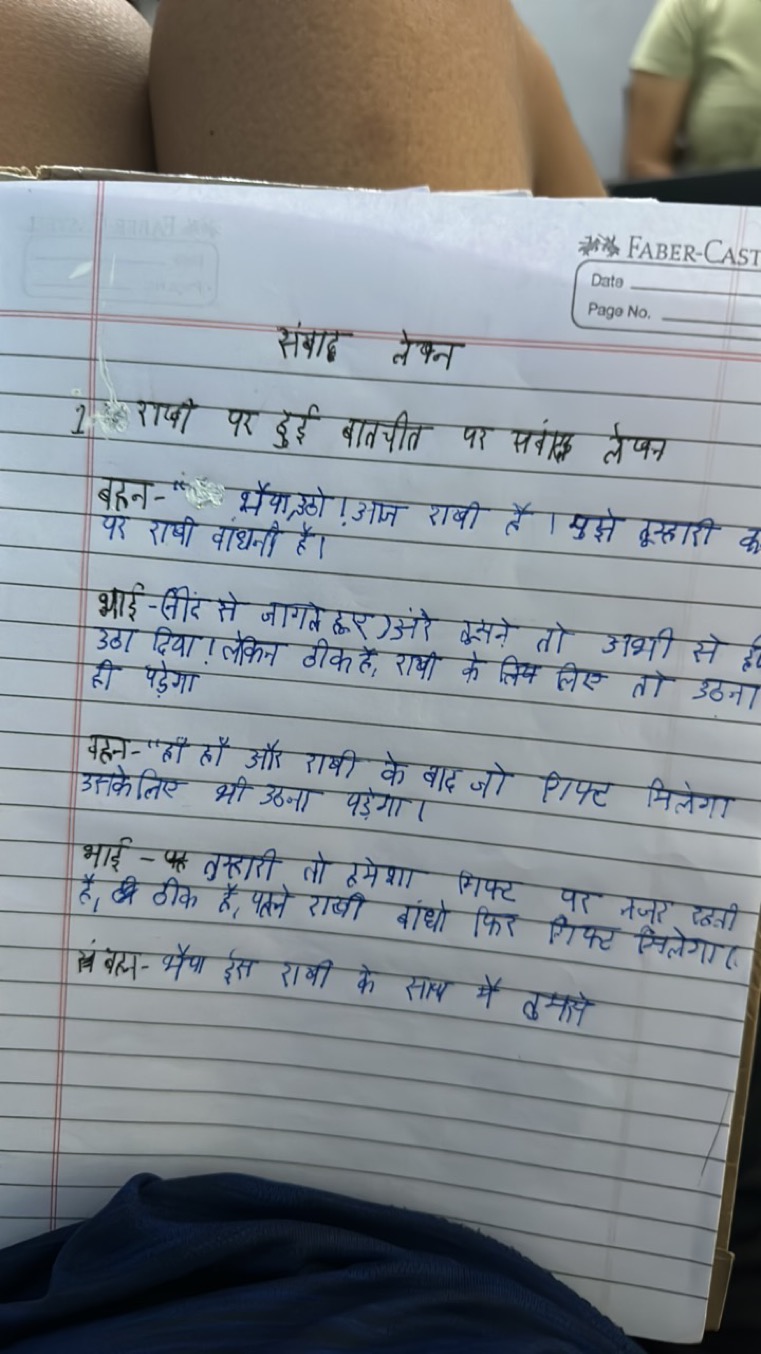 FABER-CAST
Date
Page No.
संवाद लेखन
1 राखी पर हुई बातचीत पर संवाद लेखन
बहन-" भैया उठो ! आज राखी है । मुझे तुम्हारी क
पर राखी बांधनी है।
भाई -(नींद से जागते हुए) अरे तुमने तो अभी से ही
उठा दिया ! लेकिन ठीक है, राखी के लिए तो उठना
ही पड़ेगा
बहन-"हाँ हाँ और राखी के बाद जो गिफ्ट मिलेगा
उसके लिए भी उठना पड़ेगा।
भाई - तुम्हारी तो हमेशा गिफ्ट पर नजर रहती
है, ठीक है, पहले राखी बांधो फिर गिफ्ट मिलेगा।
बहन- भैया इस राखी के साथ मैं तुमसे